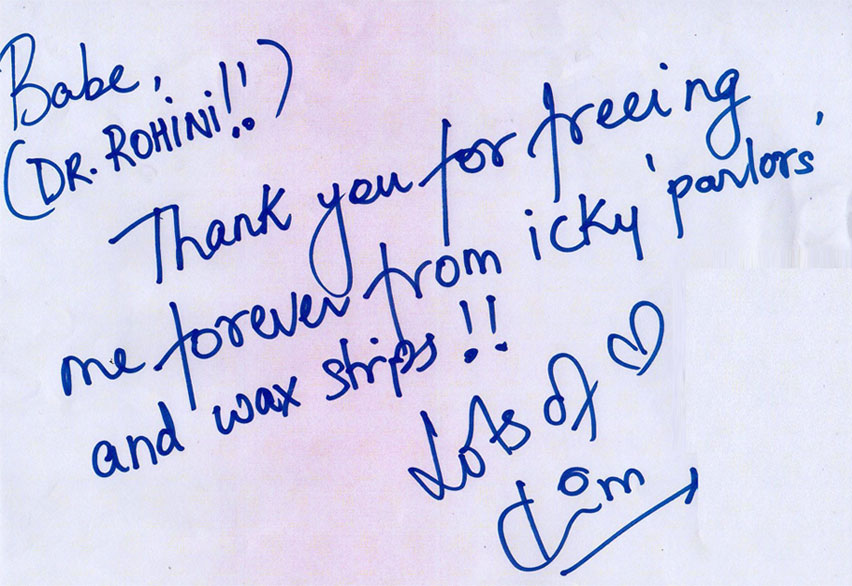 Babe,
(DR. ROHINI!!)
Thank you for freeing
me forever from icky 'parlors'
and wax strips!!
Lots of ♡